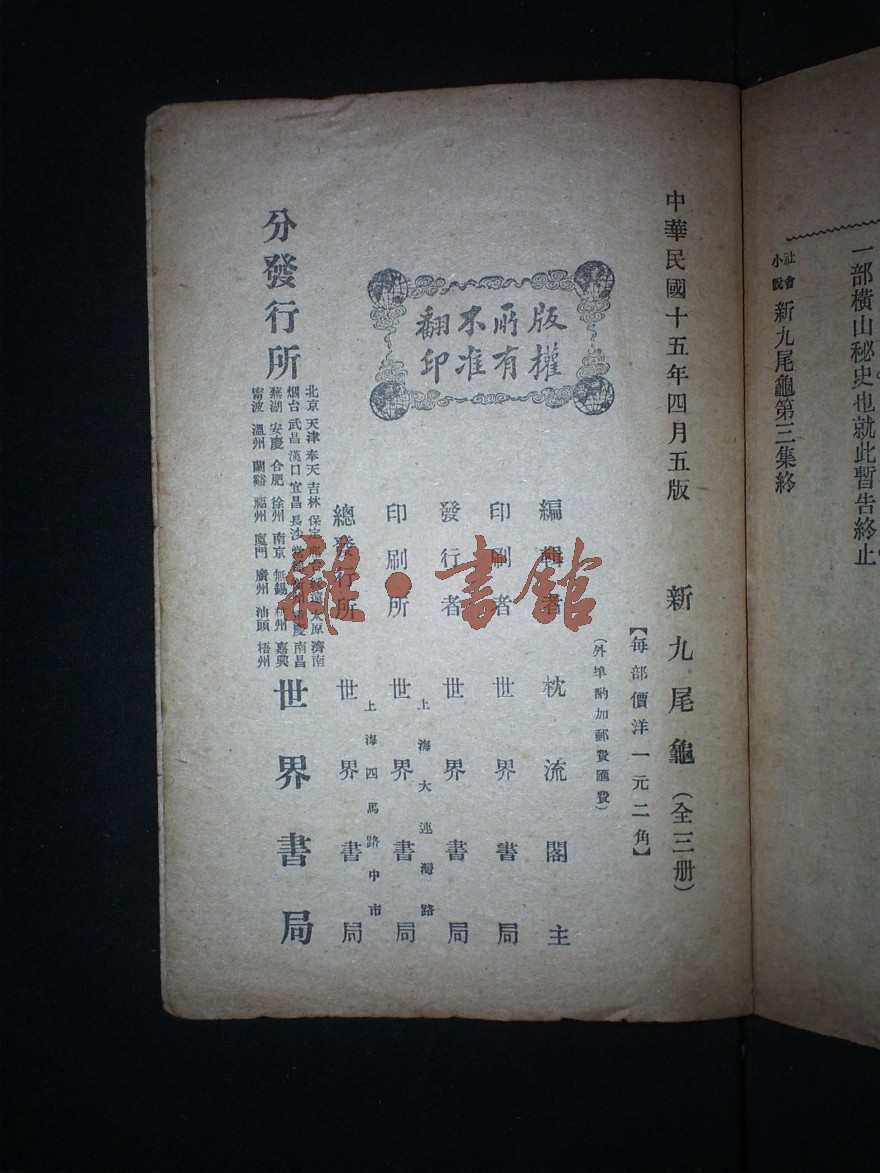 一部橫山秘史也就此暫告終止
社會小說 新九尾龜第三集終
中華民國十五年四月五版
新九尾龜（全三册）
【每部價洋一元二角】
（外埠酌加郵費匯費）
版權所有
不准翻印
編輯者 枕流閣主
印刷者 世界書局
發行者 世界書局
上海大連灣路
印刷所 世界書局
上海四馬路中市
總發行所 世界書局
分發行所
北京 天津 奉天 吉林 保定 太原 濟南
烟台 武昌 漢口 宜昌 長沙 重慶 南昌
蕪湖 安慶 合肥 徐州 南京 無錫 杭州 嘉興
甯波 溫州 蘭谿 福州 廈門 廣州 汕頭 梧州
世界書局
雜·書館